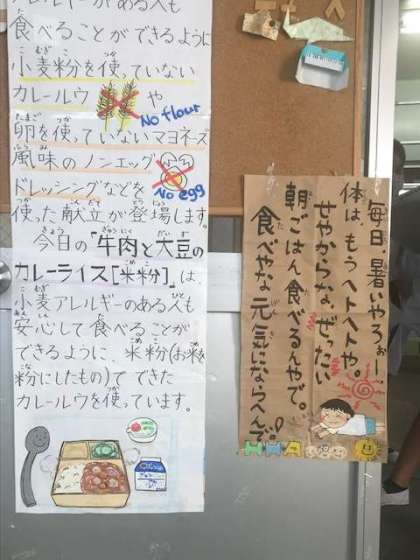 アレルギーがある人も
食べることができるように
小麦粉を使っていない
カレールウ や
No flour
卵を使っていないマヨネーズ
風味のノンエッグ
ドレッシングなどを
No egg
使った献立が登場します。
今日の「牛肉と大豆の
カレーライス[米粉]」は、
小麦アレルギーのある人も
安心して食べることが
できるように、米粉(お米を
粉にしたもの)でできた
カレールウを使っています。
毎日暑いやろぉー
体は、もうヘトヘトや。
せやからな、ぜったい
朝ごはん食べるんやで。
食べやな元気にならへんで!